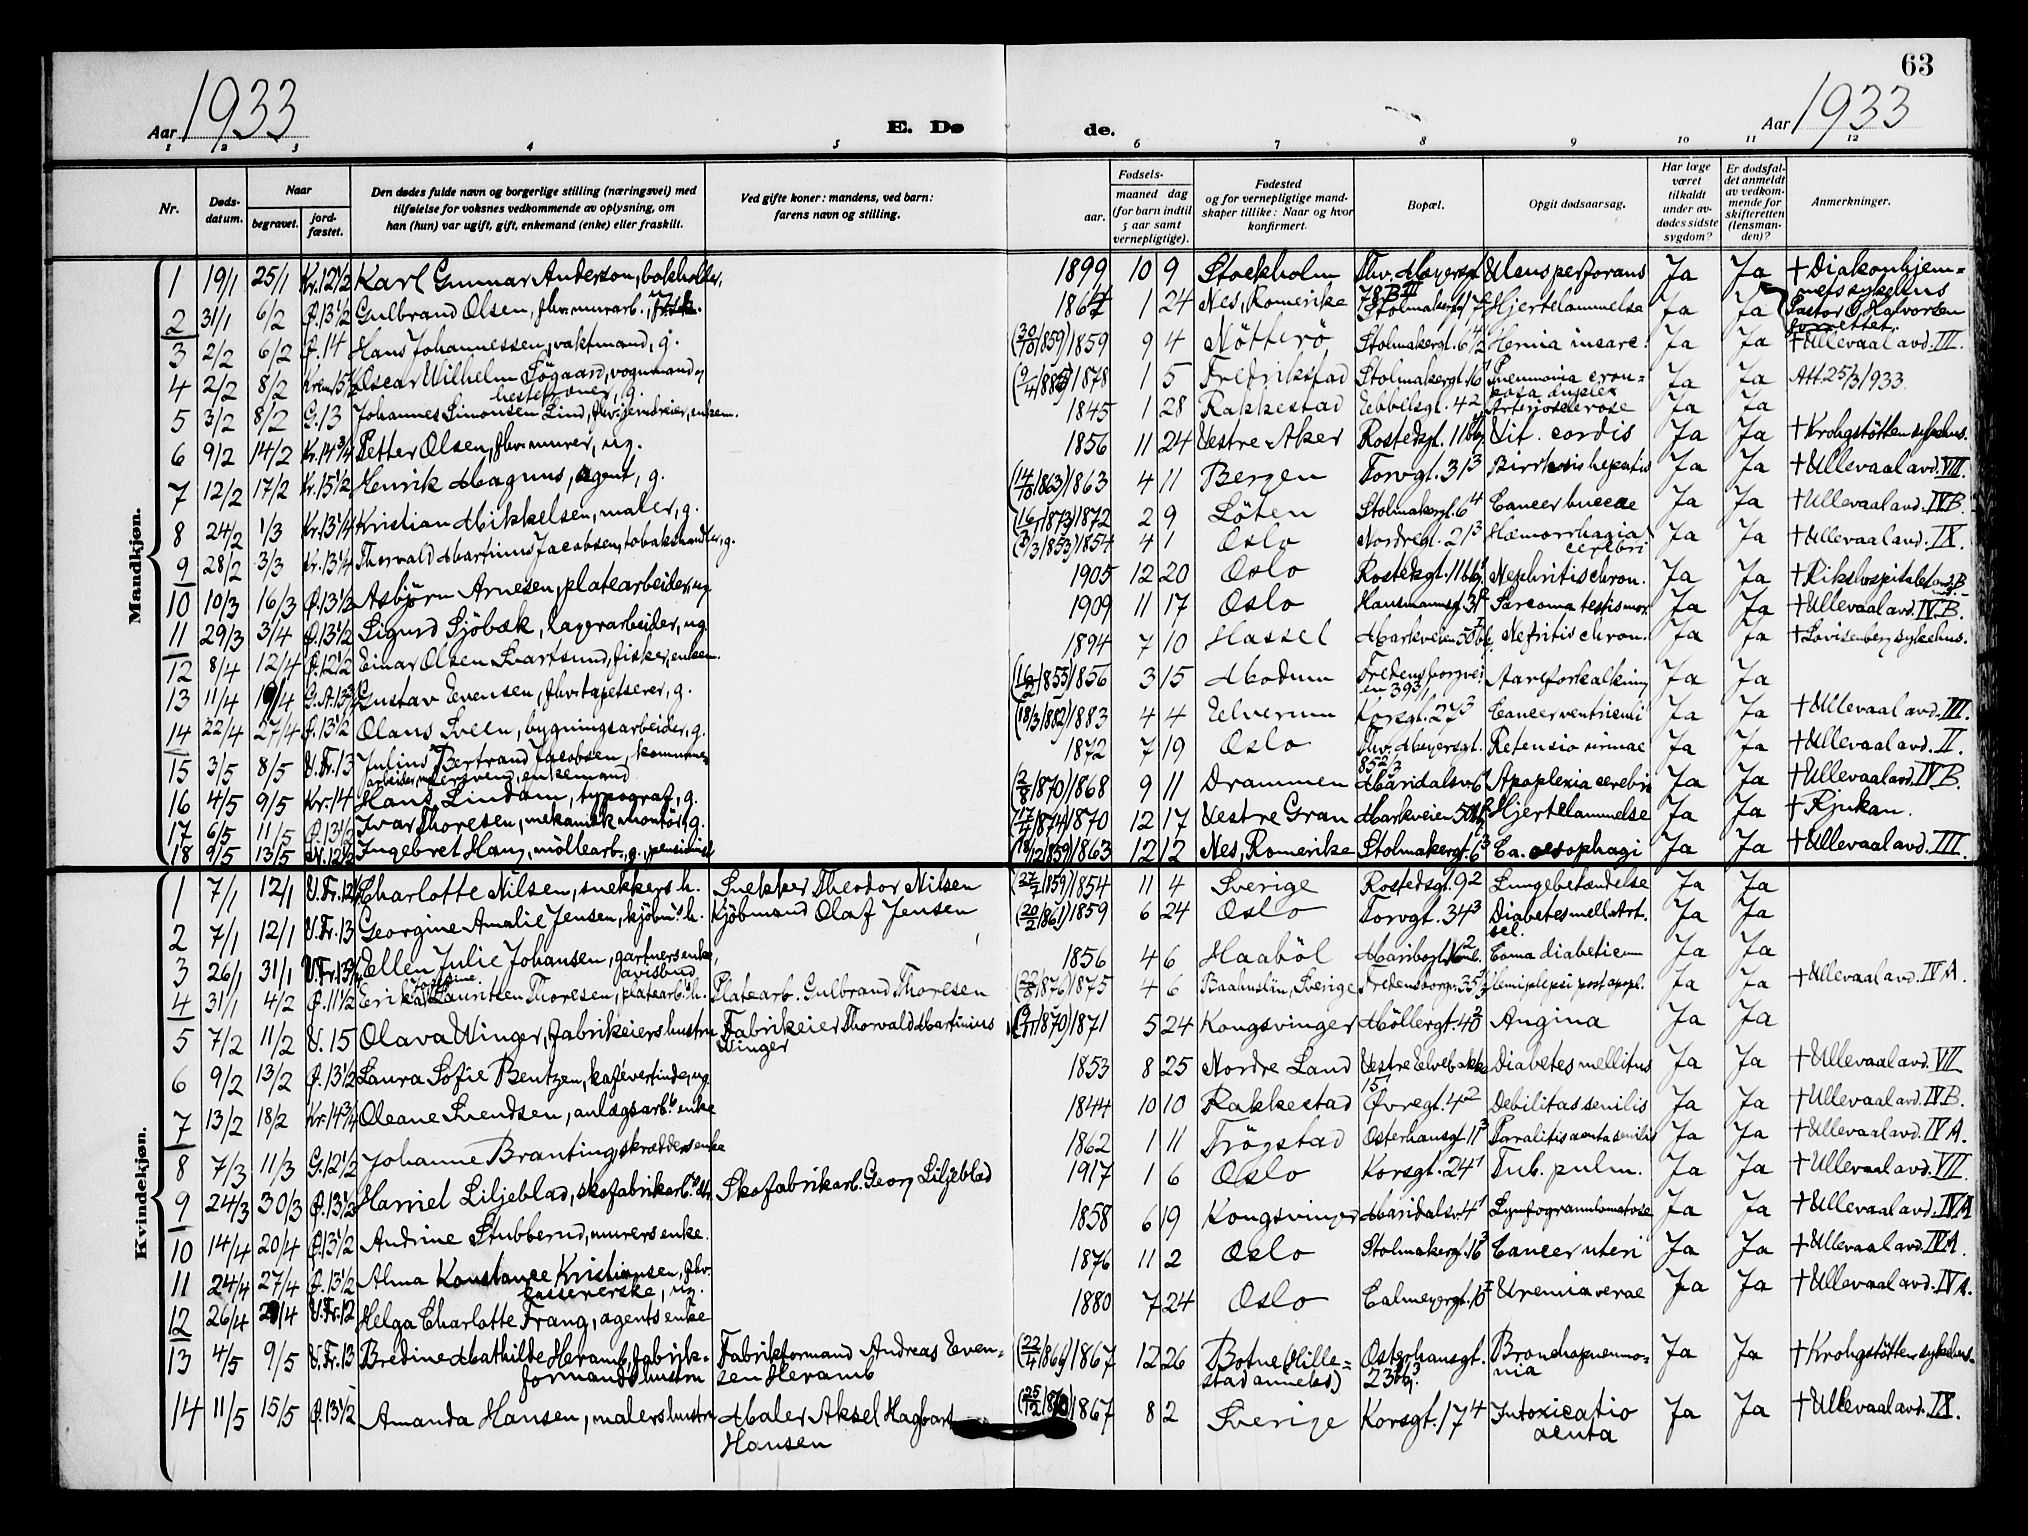 63
Aar 1933
E. Dø
de.
Aar 1933
1 2 3 4 5 6 7 8 9 10 11 12
Nr.
Døds-datum.
Naar
begravet.
jord-fæstet.
Den dødes fulde navn og borgerlige stilling (næringsvei) med
tilføielse for voksnes vedkommende av oplysning, om
han (hun) var ugift, gift, enkemand (enke) eller fraskilt.
Ved gifte koner: mandens, ved barn:
farens navn og stilling.
Fødsels-
aar.
maaned dag
(for barn indtil
5 aar samt
vernepligtige).
Fødested
og for vernepligtige mand-
skaper tillike: Naar og hvor
konfirmert.
Bopæl.
Opgit dødsaarsag.
Har læge
været
tilkaldt
under av-
dødes sidste
sygdom?
Er dødsfal-
det anmeldt
av vedkom-
mende for
skifteretten
(lensman-
den)?
Anmerkninger.
Mandkjøn.
1 19/1 25/1 Kr.12 1/2 Karl Gunnar Anderson, bokholder, 1899 10 9 Stockholm Thv. Meyersgt. 78 B III Ulcus perforans Ja Ja † Diakonhjem-mets sykehus
2 31/1 6/2 Ø.13 1/2 Gulbrand Olsen, fhv. murarb., 1864 1 24 Nes, Romerike Stolmakergt. 17 2 Hjertelammelse Ja Ja Pastor O. Halvorsen forrettet.
3 2/2 6/2 Ø.14 Hans Johannessen, vaktmand, g. (30/10 1859) 1859 9 4 Nötterö Stolmakergt. 6 4/2 Hernia incarc. Ja Ja † Ullevaal avd. III.
4 2/2 8/2 Krem. 15 1/2 Oscar Wilhelm Sögaard, vognmand og hesteproner, g. 1878 1 5 Fredrikstad Stolmakergt. 16 Pneumonia crou-posa duplex Ja Ja Att. 25/3 1933.
5 3/2 8/2 G.13 Johannes Simonsen Lind, fhv. jerndreier, enkem. 1845 1 28 Rakkestad Ebbelsgt. 4 2 Arteriosclerose Ja Ja
6 9/2 14/2 Kr.14 3/4 Petter Olsen, fhv. murer, ug. 1856 11 24 Vestre Aker Rostedsgt. 11 Vit. cordis Ja Ja † Krohgstötten sykehus.
7 12/2 17/2 Kr.15 1/2 Henrik Magnus, agent, g. (14/10 1863) 1863 4 11 Bergen Torvgt. 31 3 Cirrhosis hepatis Ja Ja † Ullevaal avd. VIII.
8 24/2 1/3 Kr.13 1/4 Kristian Mikkelsen, maler, g. 1872 2 9 Löten Stolmakergt. 6 4 Cancer buccae Ja Ja † Ullevaal avd. IV B.
9 28/2 3/3 Kr.13 1/4 Thorvald Martinius Jacobsen, tobakshandler, g. 1854 4 1 Oslo Nordregt. 21 3 Hæmorrhagia cerebri Ja Ja † Ullevaal avd. IX.
10 10/3 16/3 Ø.13 1/2 Asbjørn Arnesen, platearbeider, ug. 1905 12 20 Oslo Rostedsgt. 11 Nephritis chron. Ja Ja † Rikshospitalet avd. B
11 29/3 3/4 Ø.13 1/2 Sigurd Sjöbæk, lagerarbeider, ug. 1909 11 17 Oslo Hausmannsgt. 31 Sarcoma testis mor. Ja Ja † Ullevaal avd. IV. B.
12 8/4 12/4 Ø.12 1/2 Einar Olsen Svartsund, fisker, enkem. 1894 7 10 Hassel Markveien 50 Nefritis chron. Ja Ja † Lovisenberg sykehus.
13 11/4 19/4 G.A.13 Gustav Evensen, fhv. tapetserer, g. 1856 3 15 Modum Fredensborgvei-en 39 3/1 Aareforkalkning Ja Ja
14 22/4 27/4 Ø.13 1/2 Olaus Sveen, bygningsarbeider, g. (18/3 1882) 1883 4 4 Elverum Korsgt. 27 3 Cancer ventriculi Ja Ja † Ullevaal avd. III.
15 3/5 8/5 V.Fr.13 Julius Bertrand Jacobsen, kommune-arbeider, murersvend, enkemand 1872 7 19 Oslo Thv. Meyersgt. 85 2/3 Retensio urinae Ja Ja † Ullevaal avd. II.
16 4/5 9/5 Kr.14 Hans Lindam, typograf, g. (2/8 1870) 1868 9 11 Drammen Maridalsv. 6 Apoplexia cerebri Ja Ja † Ullevaal avd. IV B.
17 6/5 11/5 Ø.13 1/2 Ivar Thoresen, mekanisk montör, g. 1870 12 17 Vestre Gran Markveien 50 Hjertelammelse Ja Ja † Rjukan.
18 9/5 13/5 N.12 1/2 Ingebret Haug, möllearb., g., pensionist 1863 12 12 Nes, Romerike Stolmakergt. 6 3 Ca. oesophagi Ja Ja † Ullevaal avd. III.
Kvindekjøn.
1 7/1 12/1 V.Fr.12 Charlotte Nilsen, snekkers h. Snekker Theodor Nilsen (27/7 1859) 1854 11 4 Sverige Rostedsgt. 9 2 Lungebetændelse Ja Ja
2 7/1 12/1 V.Fr.13 Georgine Amalie Jensen, kjöbm.s h. Kjöbmand Olaf Jensen (20/2 1861) 1859 6 24 Oslo Torvgt. 34 3 Diabetes mell. Art. scl. Ja Ja
3 26/1 31/1 V.Fr.13 Ellen Julie Johansen, gartnersenke, avisbud 1856 4 6 Haaböl Maribogt. Coma diabeticum Ja Ja
4 31/1 4/2 Ø.11 1/2 Erika Josefine Lauritzen Thoresen, platearb.s h. Platearb. Gulbrand Thoresen 1875 4 6 Baahuslän, Sverige Fredensborgv. 35 Hemiplepsi post apopl. Ja Ja † Ullevaal avd. IV A.
5 7/2 11/2 V. 15 Olava Winger, fabrikeiers hustru Fabrikeier Thorvald Martinius Winger (9/11 1870) 1871 5 24 Kongsvinger Möllergt. 40 2 Angina Ja Ja
6 9/2 13/2 Ø.13 1/2 Laura Sofie Bentzen, kaféværtinde, ug. 1853 8 25 Nordre Land Vestre Elvebakke 15 1 Diabetes mellitus Ja Ja † Ullevaal avd. VII
7 13/2 18/2 Kr.14 3/4 Oleane Svendsen, anlægsarb.s enke 1844 10 10 Rakkestad Øvregt. 4 2 Debilitas senilis Ja Ja † Ullevaal avd. IV B.
8 7/3 11/3 G.12 1/2 Johanne Branting, skrædders enke 1862 1 11 Trögstad Osterhausgt. 11 3 Paralitis acuta senilis Ja Ja † Ullevaal avd. IV A.
9 24/3 30/3 Ø.13 1/2 Harriet Liljeblad, skofabrikarb.s dtr. Skofabrikarb. Georg Liljeblad 1917 1 6 Oslo Korsgt. 24 1 Tub. pulm. Ja Ja † Ullevaal avd. VII.
10 14/4 20/4 Ø.13 1/2 Andrine Stubberud, murers enke. 1858 6 19 Kongsvinger Maridalsv. 4 1 Lymfogranulomatose Ja Ja † Ullevaal avd. IV A
11 24/4 27/4 Ø.13 1/2 Alma Konstance Kristiansen, fhv. kassererske, ug. 1876 11 2 Oslo Stolmakergt. 16 3 Cancer uteri Ja Ja † Ullevaal avd. IV A.
12 26/4 29/4 V.Fr.12 Helga Charlotte Frang, agents enke 1880 7 24 Oslo Calmeyergt. 10 Uremia verae Ja Ja † Ullevaal avd. IV A.
13 4/5 9/5 V.Fr.13 Bredine Mathilde Heramb, fabrik-formands hustru Fabrikformand Andreas Even-sen Heramb 1867 12 26 Botne (Hille-stad annekss) Osterhausgt. 23 Bronchopneumo-nia Ja Ja † Krohgstötten sykehus.
14 11/5 15/5 Ø.13 1/2 Amanda Hansen, malers hustru Maler Aksel Hagbart Hansen 1867 8 2 Sverige Korsgt. 17 4 Intoxicatio acuta Ja Ja † Ullevaal avd. IX.